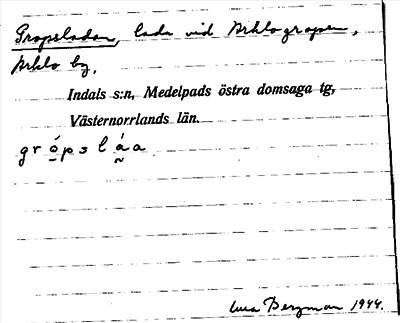 Gropsladan, lada vid Arklogropen,
Arklo by,
Indals s:n, Medelpads östra domsaga tg,
Västernorrlands län.
grópslá̰a
Bergman 1944.